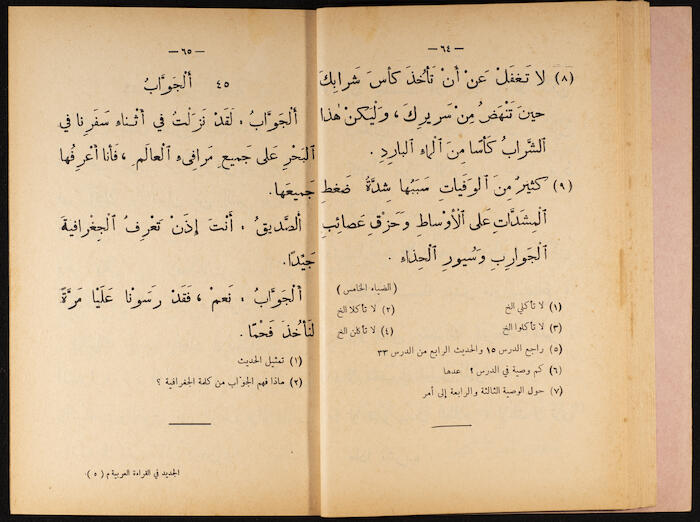 — ٦٤ —
(٨) لَا تَغْفَلْ عَنْ أَنْ تَأْخُذَ كَأْسَ شَرَابِكَ
حِينَ تَنْهَضُ مِنْ سَرِيرِكَ، وَلْيَكُنْ هٰذَا
ٱلشَّرَابُ كَأْسًا مِنَ ٱلْمَاءِ ٱلْبَارِدِ.
(٩) كَثِيرٌ مِنَ ٱلْوَفَيَاتِ سَبَبُهَا شِدَّةُ ضَغْطِ
ٱلْمِشَدَّاتِ عَلَى ٱلْأَوْسَاطِ وَحَزْقِ عَصَائِبِ
ٱلْجَوَارِبِ وَسُيُورِ ٱلْحِذَاءِ.
(الضياء الخامس)
(١) لا تأكلي الخ (٢) لا تأكلا الخ
(٣) لا تأكلوا الخ (٤) لا تأكلن الخ
(٥) راجع الدرس ١٥ والحديث الرابع من الدرس ٣٣
(٦) كم وصية في الدرس؟ عدها
(٧) حول الوصية الثالثة والرابعة إلى أمر
— ٦٥ —
٤٥ أَلْجَوَّابُ
أَلْجَوَّابُ : لَقَدْ نَزَلْتُ فِي أَثْنَاءِ سَفَرِنَا فِي
ٱلْبَحْرِ عَلَى جَمِيعِ مَرَافِىءِ ٱلْعَالَمِ، فَأَنَا أَعْرِفُهَا
جَمِيعَهَا.
أَلصَّدِيقُ : أَنْتَ إِذَنْ تَعْرِفُ ٱلْجِغْرَافِيَةَ
جَيِّدًا.
أَلْجَوَّابُ : نَعَمْ، فَقَدْ رَسَوْنَا عَلَيْهَا مَرَّةً
لِنَأْخُذَ فَحْمًا.
(١) تمثيل الحديث
(٢) ماذا فهم الجوّاب من كلمة الجغرافية ؟
الجديد في القراءة العربية م (٥)